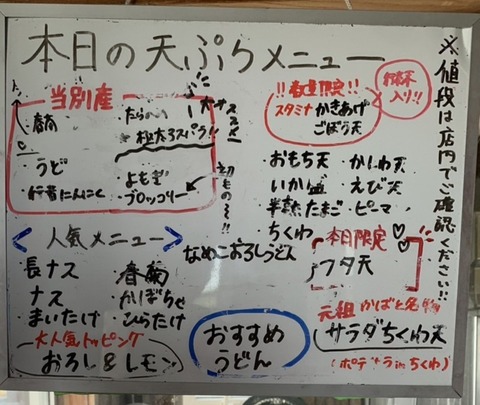 本日の天ぷらメニュー
※値段は店内でご確認ください!!
当別産
たらのめ
うど
・行者にんにく
・よもぎ
・ブロッコリー
!!数量限定!!
スタミナかきあげ
ごぼう天
入り!!
・おもち天 ・かしわ天
・いか ・えび天
半熟たまご ・ピーマ
・ちくわ
なめこおろしうどん
本日限定
フタ天
<人気メニュー>
長ナス 春菊
ナス ・かぼちゃ
・まいたけ ・ひらたけ
大人気トッピング
おろし&レモン
おすすめ
うどん
元祖 かばと名物
サラダちくわ天
(ポテサラinちくわ)